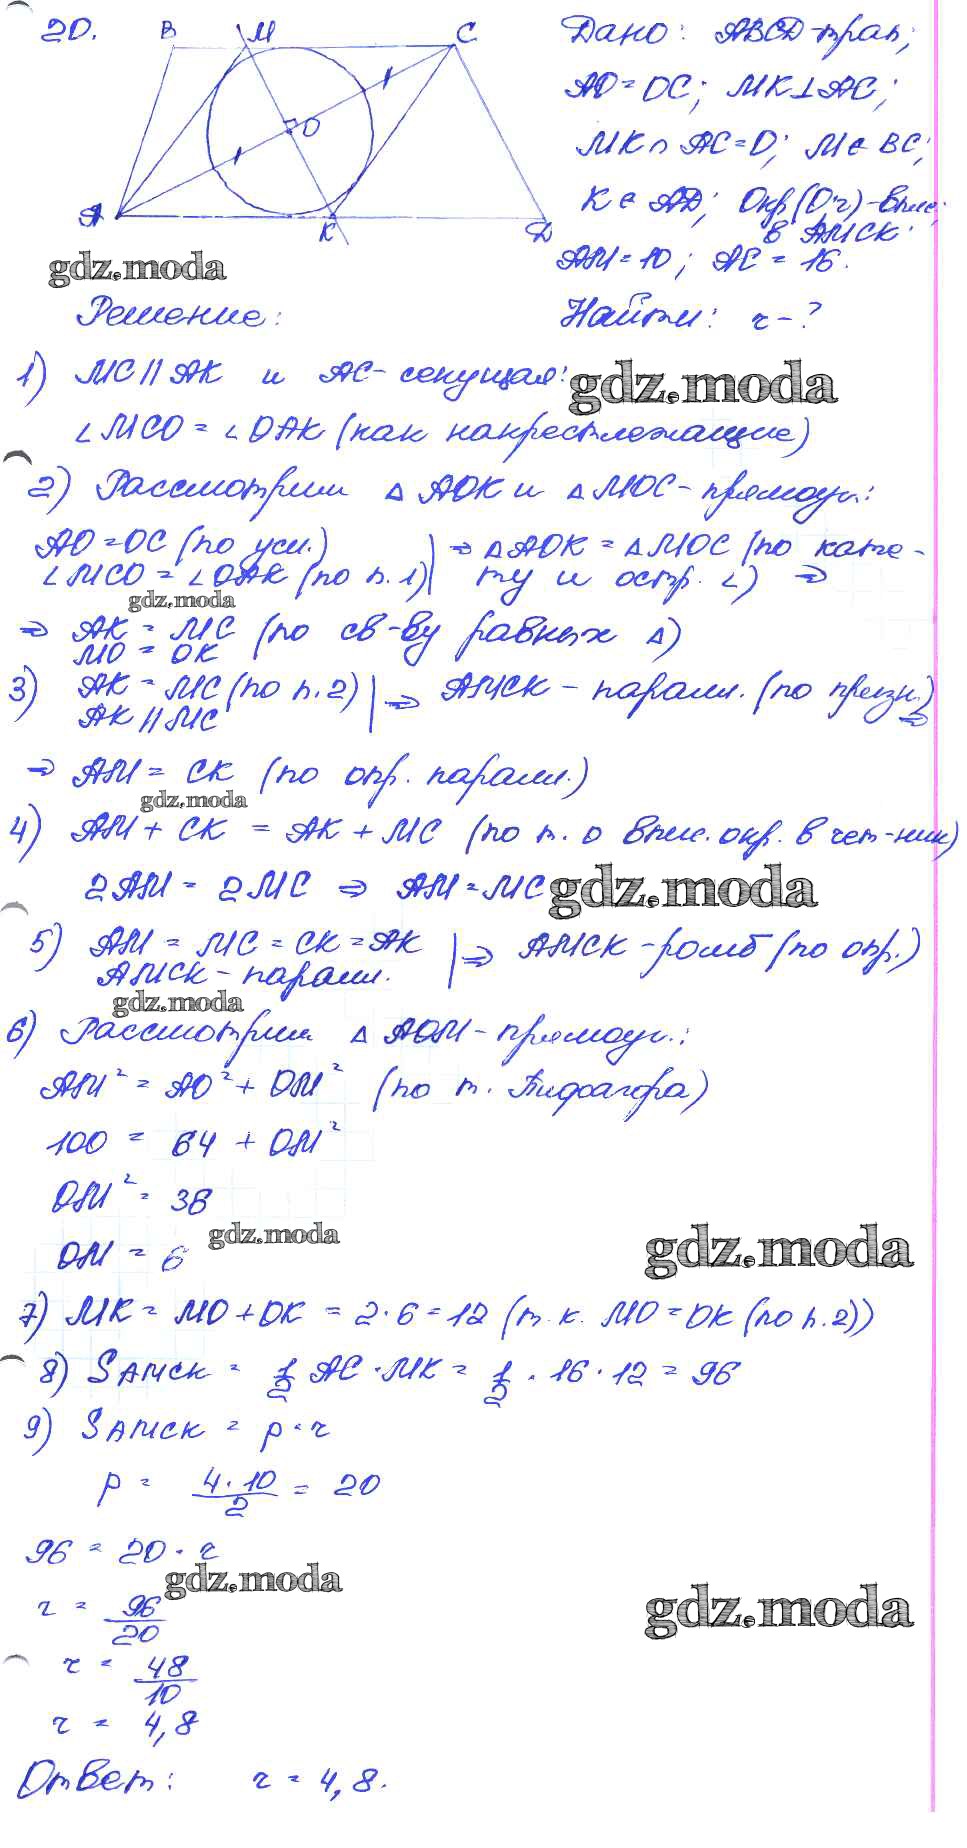 20. B M C Дано: ABCD-трап;
AO=OC; MK⊥AC;
O MK∩AC=O; M∈BC;
K∈AD; Окр(O;r)-впис;
A K D в AMCK.
AM=10; AC=16.
gdz.moda
Решение: Найти: r-?
1) MC||AK и AC-секущая:
gdz.moda
∠MCO=∠OAK (как накрестлежащие)
2) Рассмотрим △AOK и △MOC-прямоуг.:
AO=OC (по усл.) | ⇒ △AOK=△MOC (по кате-
∠MCO=∠OAK (по п.1) | ту и остр. ∠) ⇒
gdz.moda
⇒ AK=MC (по св-ву равных △)
MO=OK
3) AK=MC (по п.2) | ⇒ AMCK-паралл. (по призн.)
AK||MC ⇒
⇒ AM=CK (по опр. паралл.)
gdz.moda
4) AM+CK=AK+MC (по т. о впис. окр. в чет-ник)
2AM=2MC ⇒ AM=MC
gdz.moda
5) AM=MC=CK=AK | ⇒ AMCK-ромб (по опр.)
AMCK-паралл.
gdz.moda
6) Рассмотрим △AOM-прямоуг.:
AM²=AO²+OM² (по т. Пифагора)
100=64+OM²
OM²=36
gdz.moda gdz.moda
OM=6
7) MK=MO+OK=2·6=12 (т.к. MO=OK (по п.2))
8) SAMCK=1/2 AC·MK=1/2·16·12=96
9) SAMCK=p·r
p=4·10/2=20
96=20·r
gdz.moda gdz.moda
r=96/20
r=48/10
r=4,8
Ответ: r=4,8.